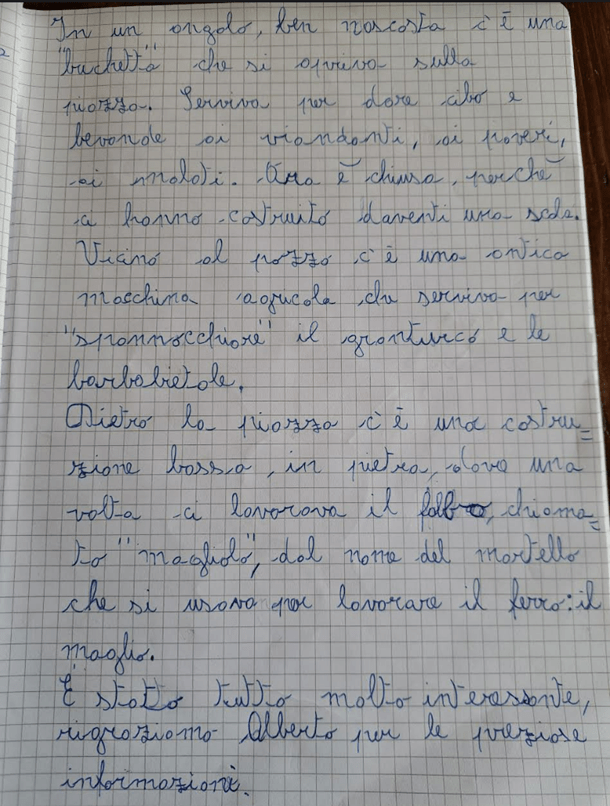 In un angolo, ben nascosta c'è una
"buchetta" che si apriva sulla
piazza. Serviva per dare cibo e
bevande ai viandanti, ai poveri,
ai malati. Ora è chiusa, perchè
a hanno costruito daventi una scala.
Vicino al pozzo c'è una antica
macchina agricola che serviva per
"spannocchiare" il granturco e le
barbabietole.
Dietro la piazza c'è una costru=
zione bassa, in pietra, dove una
volta ci lavorava il fabbro, chiama=
to "magliolo", dal nome del martello
che si usava per lavorare il ferro: il
maglio.
È stato tutto molto interessante,
rigraziamo Alberto per le preziose
informazioni.